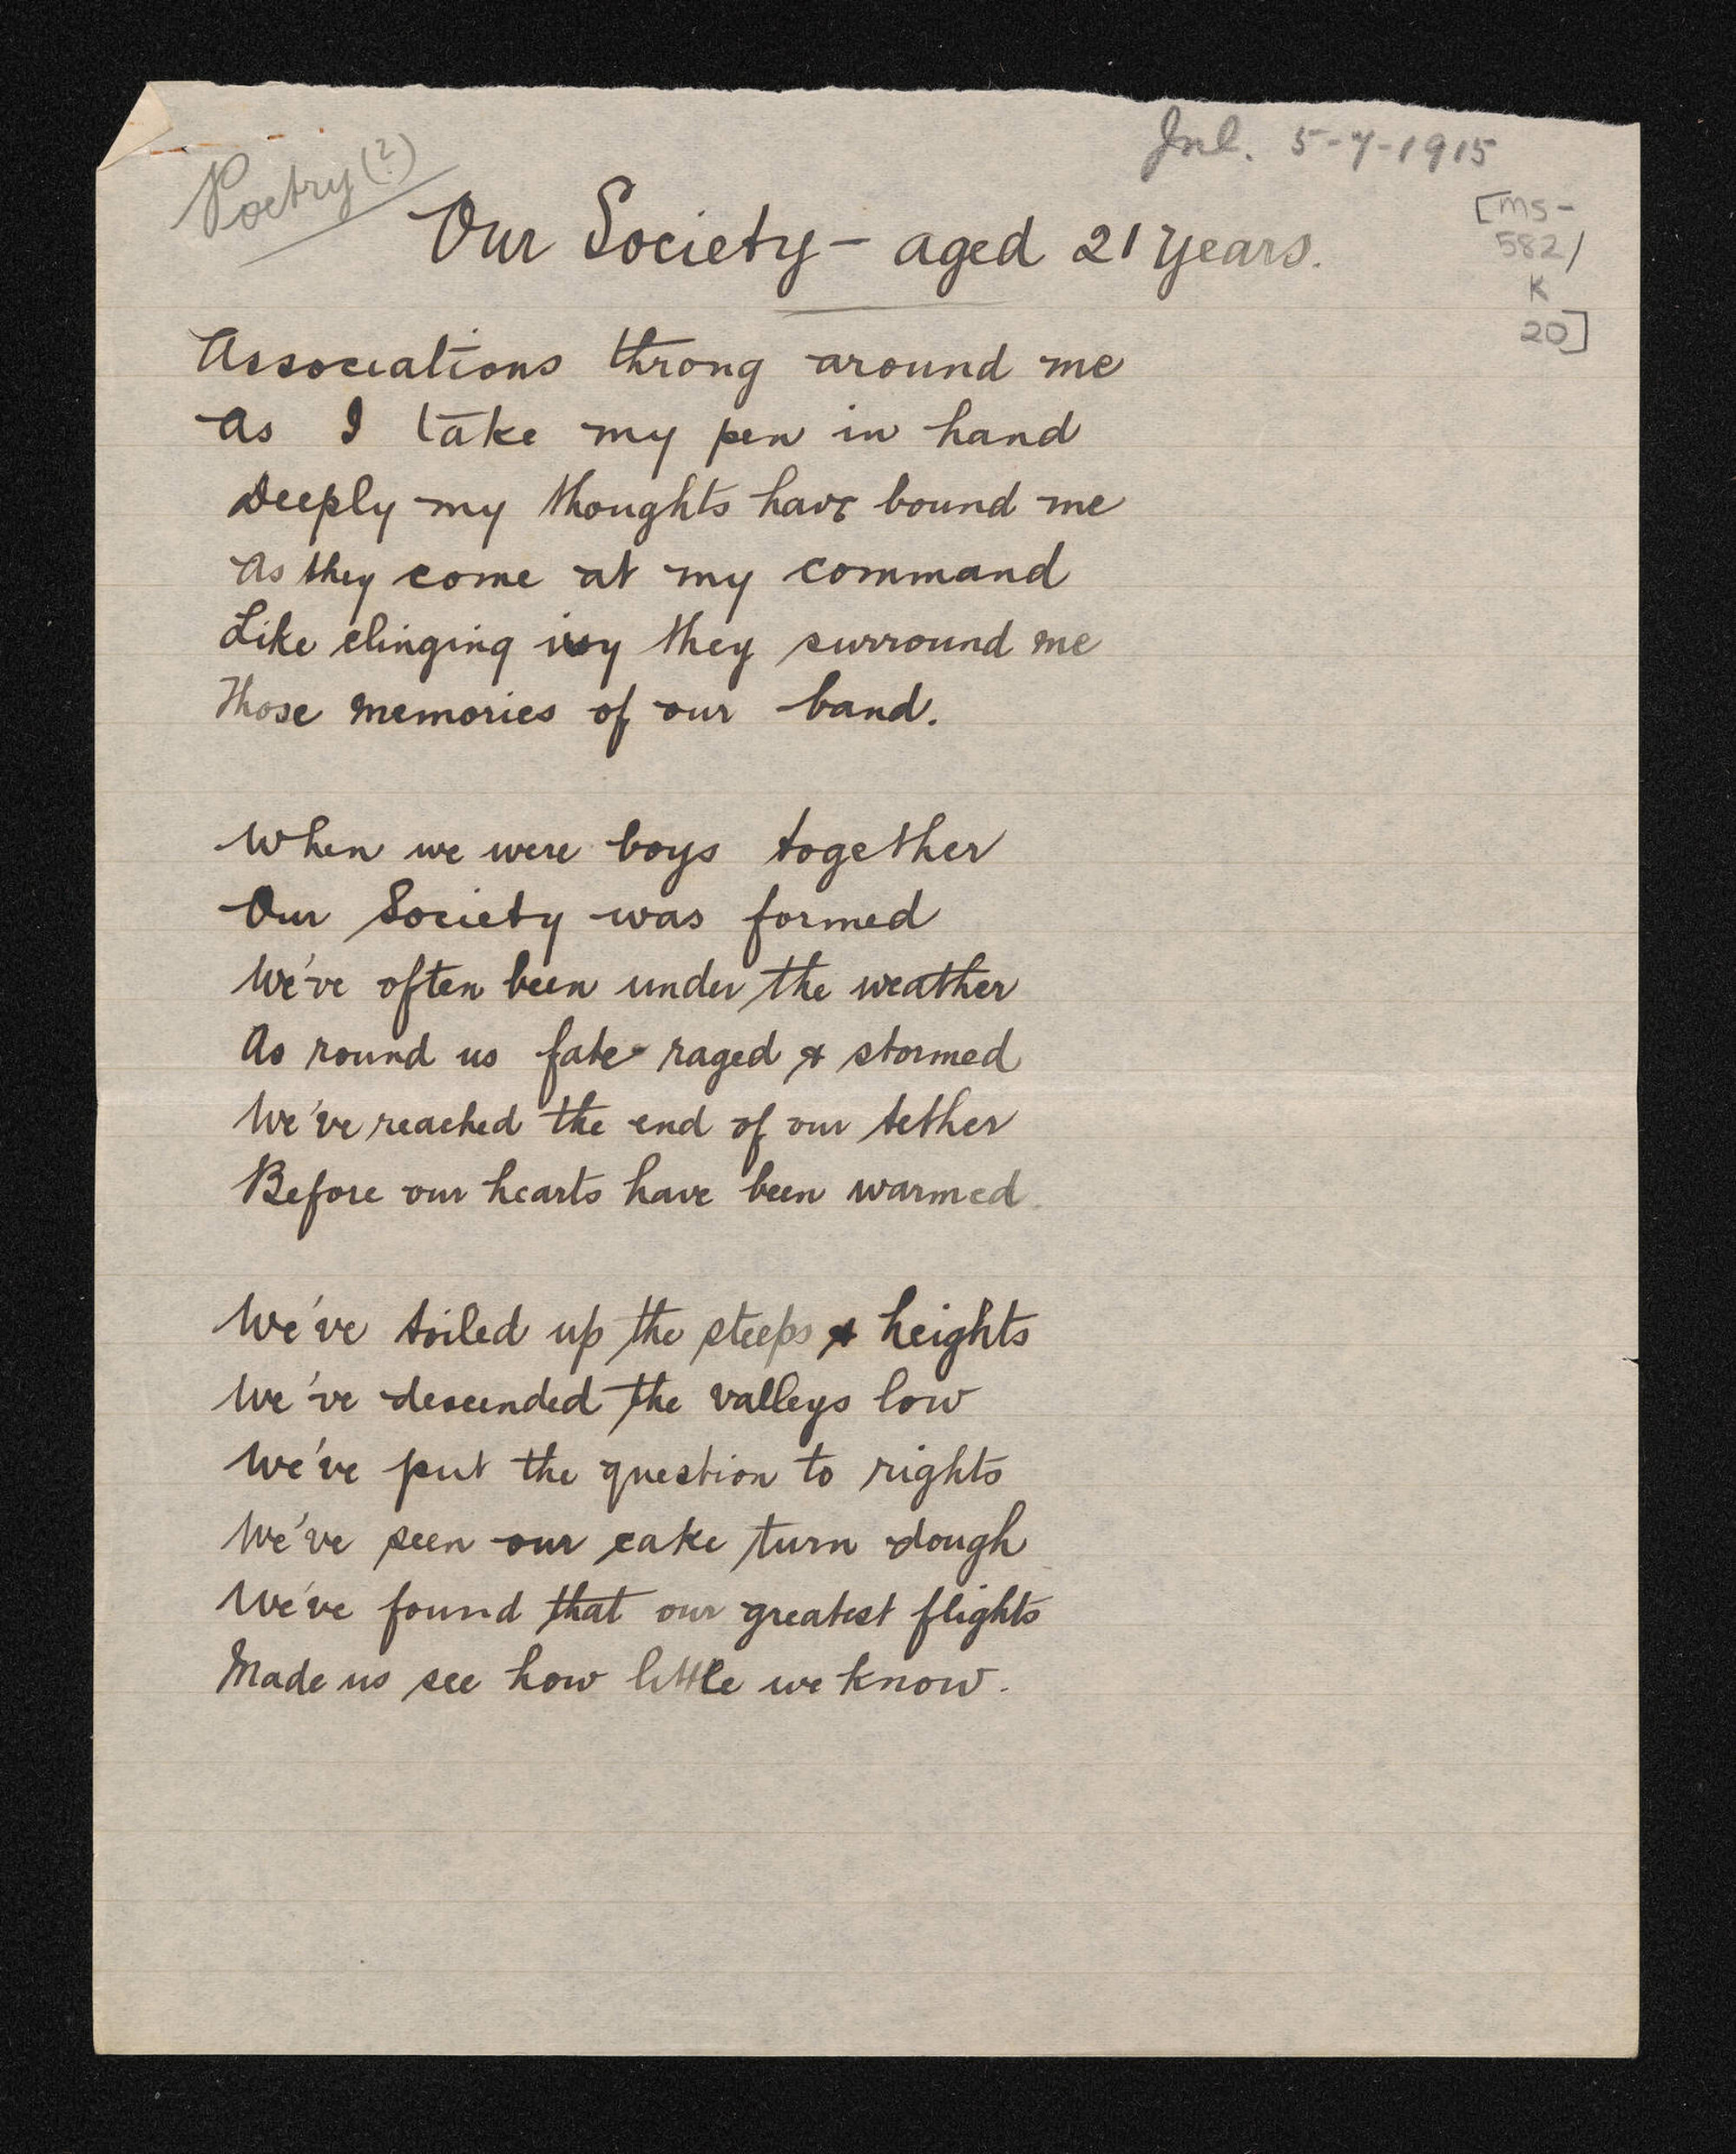 Jnl. 5-7-1915
Poetry (?)
[MS-
582/
K
20]
Our Society – aged 21 years.
Associations throng around me
As I take my pen in hand
Deeply my thoughts have bound me
As they come at my command
Like clinging ivy they surround me
Those memories of our band.
When we were boys together
Our Society was formed
We've often been under the weather
As round us fate raged & stormed
We've reached the end of our tether
Before our hearts have been warmed
We've toiled up the steeps & heights
We've descended the valleys low
We've put the question to rights
We've seen our cake turn dough
We've found that our greatest flights
Made us see how little we know.